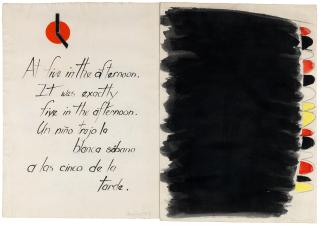 At five in the afternoon.
It was exactly
five in the afternoon.
Un niño trajo la
blanca sábana
a las cinco de la
tarde.